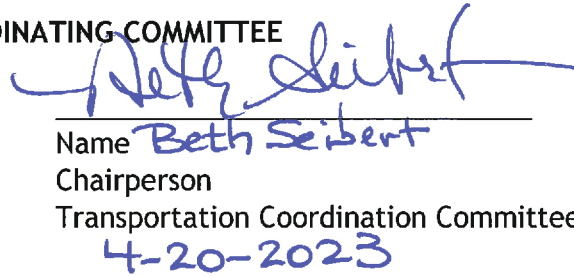 DINATING COMMITTEE
Beth Seibert
Name Beth Seibert
Chairperson
Transportation Coordination Committee
4-20-2023